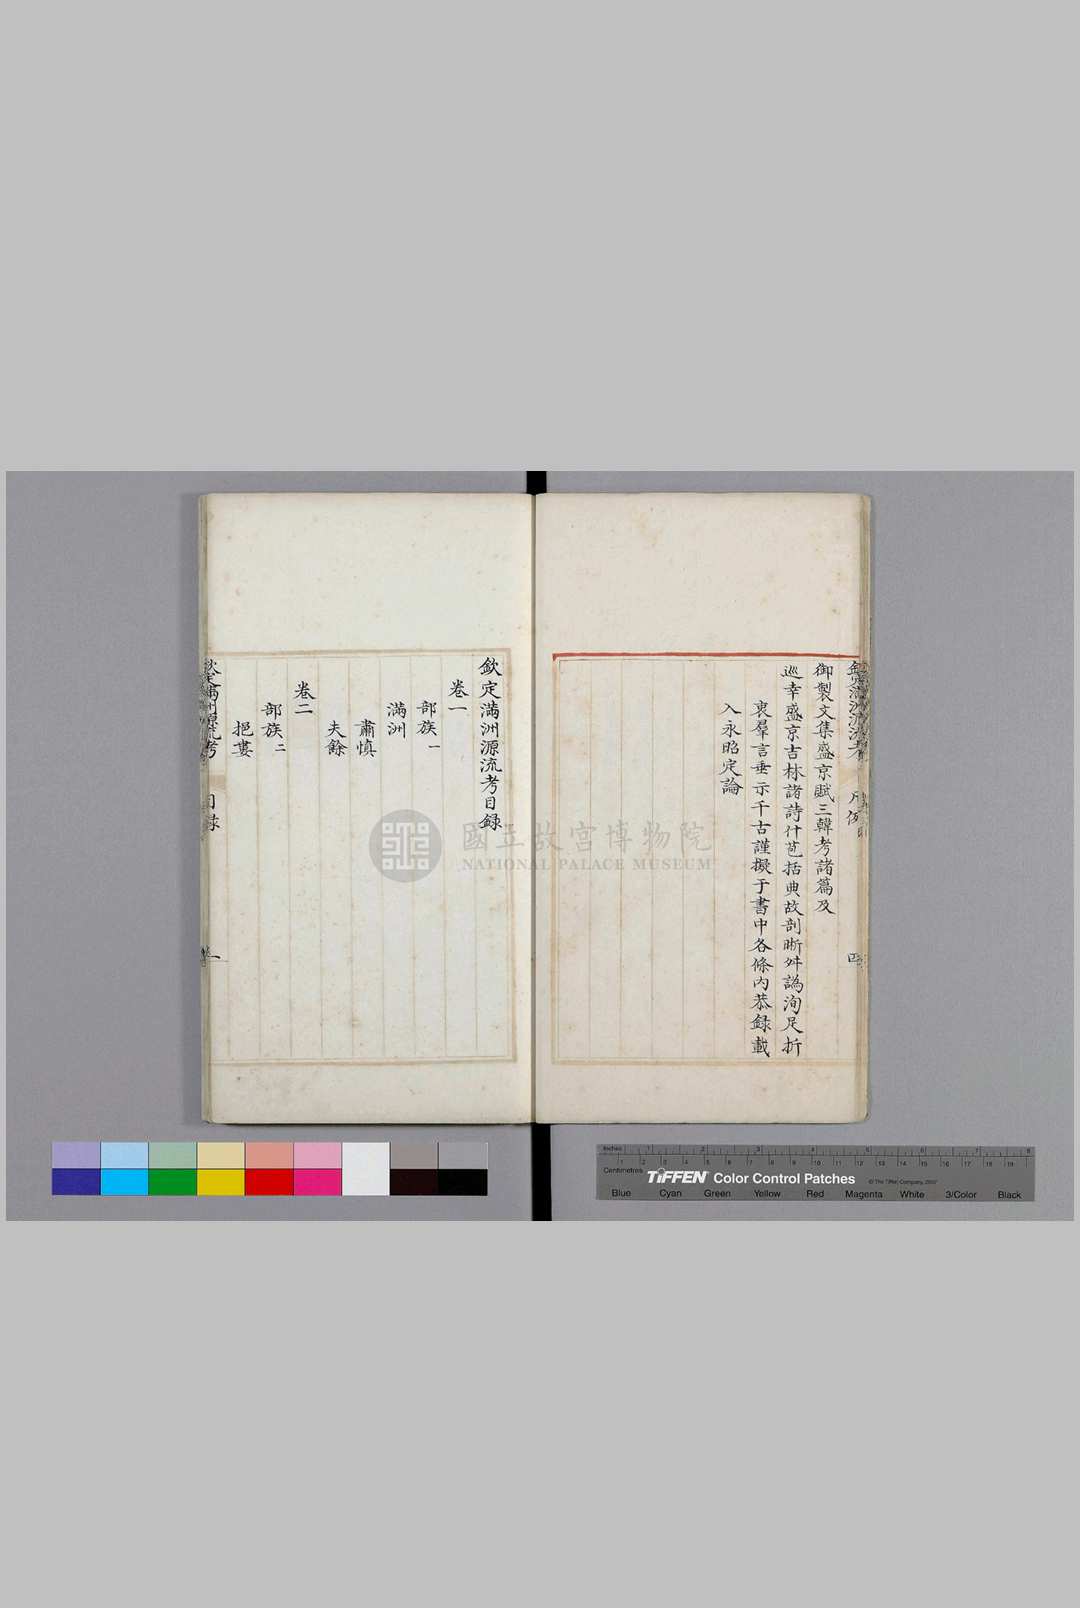 御製文集盛京賦三韓考諸篇及
巡幸盛京吉林諸詩什苞括典故剖晰舛譌洵足折
衷羣言垂示千古謹擬于書中各條內恭錄載
入永昭定論
欽定滿洲源流考目錄
卷一
部族一
滿洲
肅慎
夫餘
卷二
部族二
挹婁
欽定滿洲源流考 目錄 一
國立故宮博物院
NATIONAL PALACE MUSEUM
Inches 1 2 3 4 5 6 7 8
Centimetres 1 2 3 4 5 6 7 8 9 10 11 12 13 14 15 16 17 18 19
TIFFEN Color Control Patches © The Tiffen Company, 2007
Blue Cyan Green Yellow Red Magenta White 3/Color Black